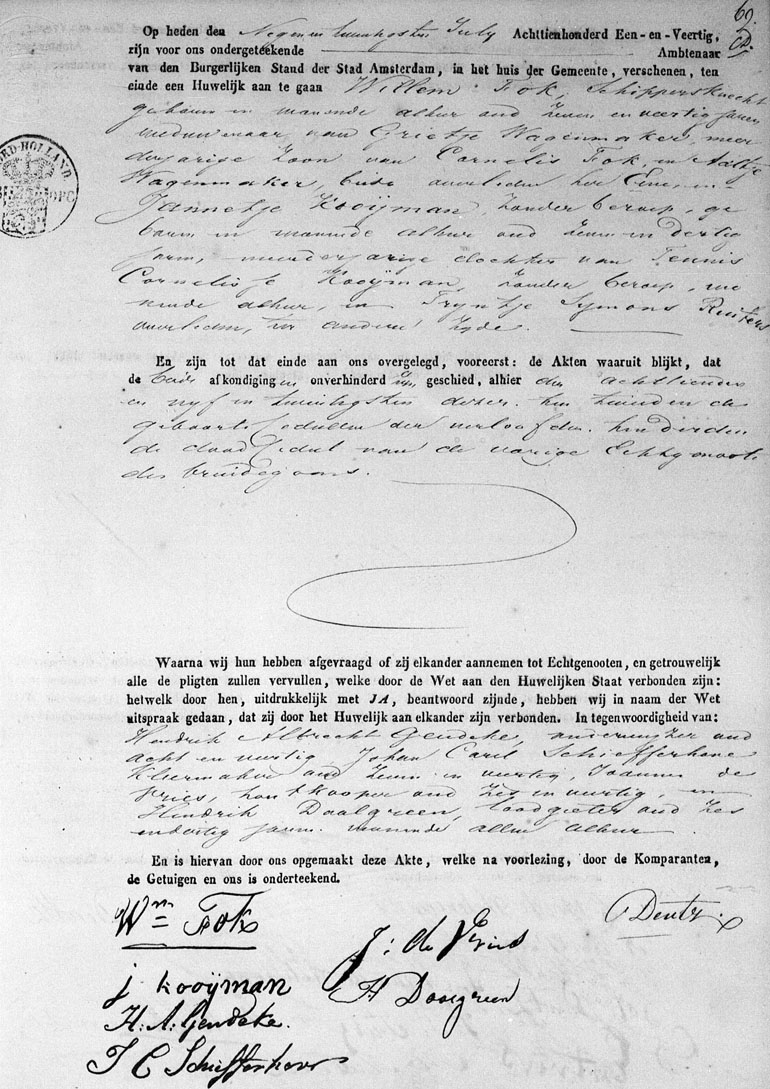 69.
Op heden den Negen en twinhgsten July Achttienhonderd Een-en-Veertig,
rijn voor ons ondergeteekende Ambtenaar
van den Burgerlijken Stand der Stad Amsterdam, in het huis der Gemeente, verschenen, ten
einde een Huwelijk aan te gaan Willem Fok, Schippersknecht
geboren en wonende alhier oud Zeven en veertig Jaren
weduwenaar van Grietje Wagenmaker, meer
derjarige Zoon van Cornelis Fok, en Aaltje
Wagenmaker, beide overleden ter Eene, en
Jannetje Kooÿman, Zonder beroep, ge
boren en wonende alhier oud Zeven en dertig
Jaren, meerderjarige dochter van Teunis
Cornelisse Kooÿman, Zonder beroep, wo
nende alhier, en Tryntje Symons Ruiters
overleden, ter andere Zyde.
NOORD-HOLLAND
En zijn tot dat einde aan ons overgelegd, vooreerst: de Akten waaruit blijkt, dat
de beide afkondigingen onverhinderd zijn geschied, alhier den achttienden
en vyf en twinhgsten dezer. ten tweeden de
geboorte Cedullen der verloofden. ten derden
de dood Cedul van de vorige Echtgenoote
des bruidegoms.
Waarna wij hun hebben afgevraagd of zij elkander aannemen tot Echtgenooten, en getrouwelijk
alle de pligten zullen vervullen, welke door de Wet aan den Huwelijken Staat verbonden zijn:
hetwelk door hen, uitdrukkelijk met JA, beantwoord zijnde, hebben wij in naam der Wet
uitspraak gedaan, dat zij door het Huwelijk aan elkander zijn verbonden. In tegenwoordigheid van:
Hendrik Albrecht Gendeke, oud
acht en veertig Johan Carel Schiefferhove
Kleermaker oud Zeven en veertig, Joannes de
Vries, houtkooper oud Zes en veertig, en
Hendrik Doolgreen, loodgieter oud Zes
en dertig Jaren. wonende allen alhier
En is hiervan door ons opgemaakt deze Akte, welke na voorlezing, door de Komparanten,
de Getuigen en ons is onderteekend.
Wm Fok
Deutz
J: de Vries
j kooÿman
H Doolgreen
H. A. Gendeke.
J C Schiefferhove